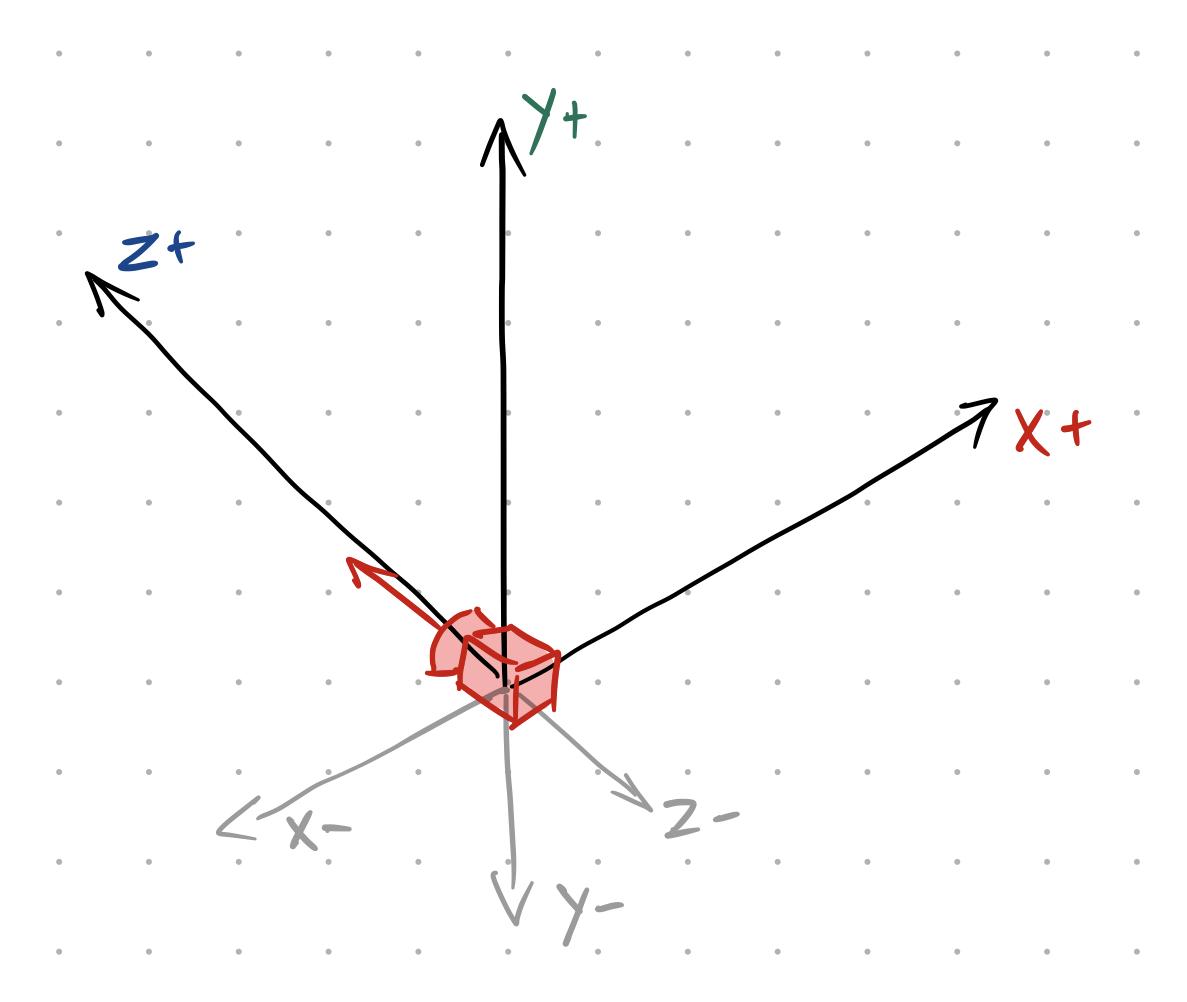 Y+
Z+
X+
X-
Z-
Y-